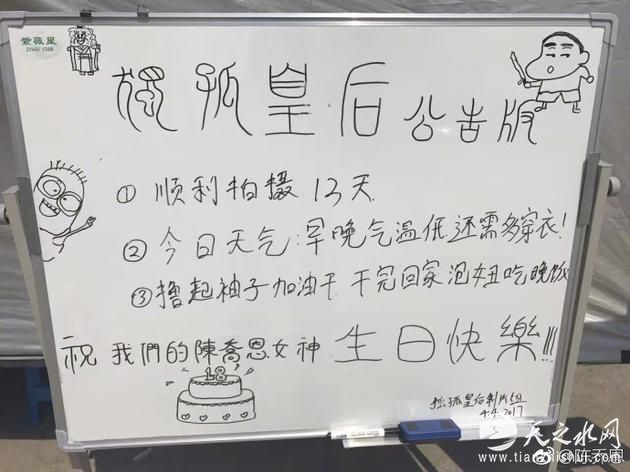 紫薇星
ZIWEI STAR
獨孤皇后公告版
① 顺利拍摄13天
② 今日天气:早晚气温低还需多穿衣!
③ 撸起袖子加油干 干完回家泡妞吃晚饭
祝我們的陳喬恩女神 生日快樂!!!
18
独孤皇后制片组
4.4.2017
天之水网
@陈乔恩